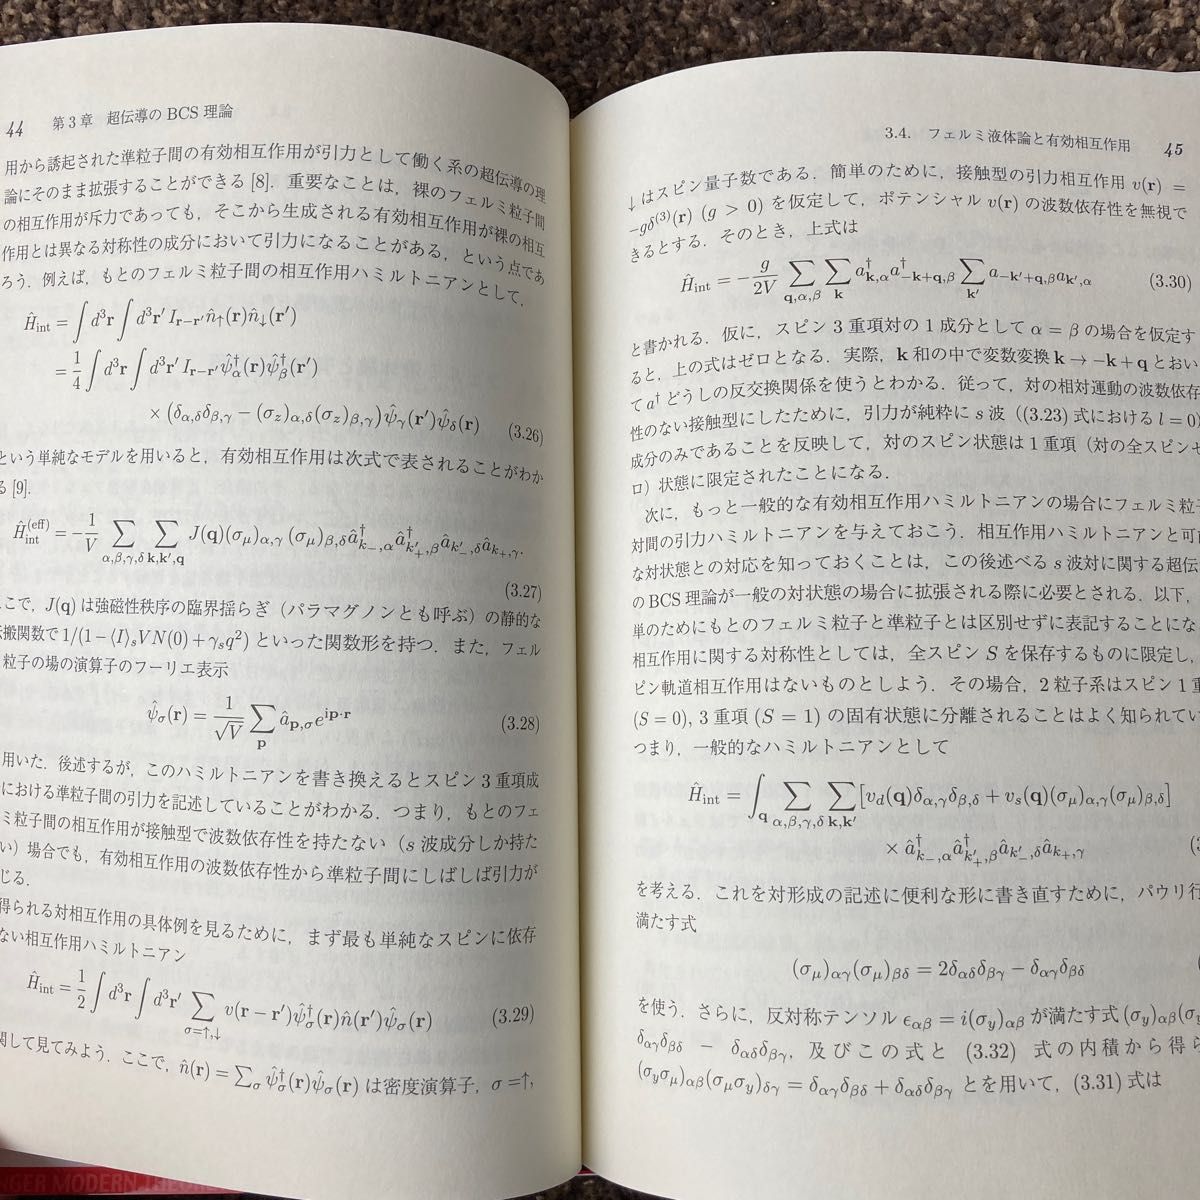 44 第3章 超伝導の BCS 理論
用から誘起された準粒子間の有効相互作用が引力として働く系の超伝導の理
論にそのまま拡張することができる [8]. 重要なことは,裸のフェルミ粒子間
の相互作用が斥力であっても,そこから生成される有効相互作用が裸の相互
作用とは異なる対称性の成分において引力になることがある,という点であ
ろう. 例えば,もとのフェルミ粒子間の相互作用ハミルトニアンとして,
Ĥ_int = ∫d³r ∫d³r′ I_{r−r′} n̂_↑(r) n̂_↓(r′)
= 1/4 ∫d³r ∫d³r′ I_{r−r′} ψ̂†_α(r) ψ̂†_β(r′)
× (δ_{α,δ}δ_{β,γ} − (σ_z)_{α,δ}(σ_z)_{β,γ}) ψ̂_γ(r′) ψ̂_δ(r) (3.26)
という単純なモデルを用いると,有効相互作用は次式で表されることがわか
る [9].
Ĥ^{(eff)}_int = −1/V Σ_{α,β,γ,δ} Σ_{k,k′,q} J(q)(σ_μ)_{α,γ} (σ_μ)_{β,δ} â†_{k−,α} â†_{k′+,β} â_{k′−,δ} â_{k+,γ}.
(3.27)
ここで, J(q) は強磁性秩序の臨界揺らぎ(パラマグノンとも呼ぶ)の静的な
伝搬関数で 1/(1−⟨I⟩_s VN(0) + γ_s q²) といった関数形を持つ. また,フェル
粒子の場の演算子のフーリエ表示
ψ̂_σ(r) = 1/√V Σ_p â_{p,σ} e^{ip·r} (3.28)
用いた. 後述するが,このハミルトニアンを書き換えるとスピン3重項成
における準粒子間の引力を記述していることがわかる. つまり,もとのフェ
ミ粒子間の相互作用が接触型で波数依存性を持たない(s 波成分しか持た
い)場合でも,有効相互作用の波数依存性から準粒子間にしばしば引力が
じる.
得られる対相互作用の具体例を見るために,まず最も単純なスピンに依存
ない相互作用ハミルトニアン
Ĥ_int = 1/2 ∫d³r ∫d³r′ Σ_{σ=↑,↓} v(r − r′) ψ̂†_σ(r) n̂(r′) ψ̂_σ(r) (3.29)
関して見てみよう. ここで, n̂(r) = Σ_σ ψ̂†_σ(r) ψ̂_σ(r) は密度演算子, σ =↑,
NGER MODERN THEOR
3.4. フェルミ液体論と有効相互作用 45
↓はスピン量子数である. 簡単のために,接触型の引力相互作用 v(r) =
−gδ^{(3)}(r) (g > 0) を仮定して,ポテンシャル v(r) の波数依存性を無視で
きるとする. そのとき,上式は
Ĥ_int = −g/2V Σ_{q,α,β} Σ_k a†_{k,α} a†_{−k+q,β} Σ_{k′} a_{−k′+q,β} a_{k′,α} (3.30)
と書かれる. 仮に,スピン3重項対の1成分として α = β の場合を仮定す
ると,上の式はゼロとなる. 実際, k 和の中で変数変換 k → −k + q とおい
て a† どうしの反交換関係を使うとわかる. 従って,対の相対運動の波数依存
性のない接触型にしたために,引力が純粋に s 波((3.23) 式における l = 0)
成分のみであることを反映して,対のスピン状態は1重項(対の全スピンゼ
ロ)状態に限定されたことになる.
次に,もっと一般的な有効相互作用ハミルトニアンの場合にフェルミ粒子
対間の引力ハミルトニアンを与えておこう. 相互作用ハミルトニアンと可能
な対状態との対応を知っておくことは,この後述べる s 波対に関する超伝
の BCS 理論が一般の対状態の場合に拡張される際に必要とされる. 以下,
単のためにもとのフェルミ粒子と準粒子とは区別せずに表記することにな
相互作用に関する対称性としては,全スピン S を保存するものに限定し,
ピン軌道相互作用はないものとしよう. その場合,2粒子系はスピン1重
(S = 0), 3重項 (S = 1) の固有状態に分離されることはよく知られてい
つまり,一般的なハミルトニアンとして
Ĥ_int = ∫_q Σ_{α,β,γ,δ} Σ_{k,k′} [v_d(q)δ_{α,γ}δ_{β,δ} + v_s(q)(σ_μ)_{α,γ}(σ_μ)_{β,δ}]
× â†_{k−,α} â†_{k′+,β} â_{k′−,δ} â_{k+,γ} (3
を考える. これを対形成の記述に便利な形に書き直すために,パウリ行
満たす式
(σ_μ)_{αγ}(σ_μ)_{βδ} = 2δ_{αδ}δ_{βγ} − δ_{αγ}δ_{βδ} (
を使う. さらに,反対称テンソル ϵ_{αβ} = i(σ_y)_{αβ} が満たす式 (σ_y)_{αβ}(σ_y
δ_{αγ}δ_{βδ} − δ_{αδ}δ_{βγ}, 及びこの式と (3.32) 式の内積から得ら
(σ_yσ_μ)_{αβ}(σ_μσ_y)_{δγ} = δ_{αγ}δ_{βδ} + δ_{αδ}δ_{βγ} とを用いて, (3.31) 式は